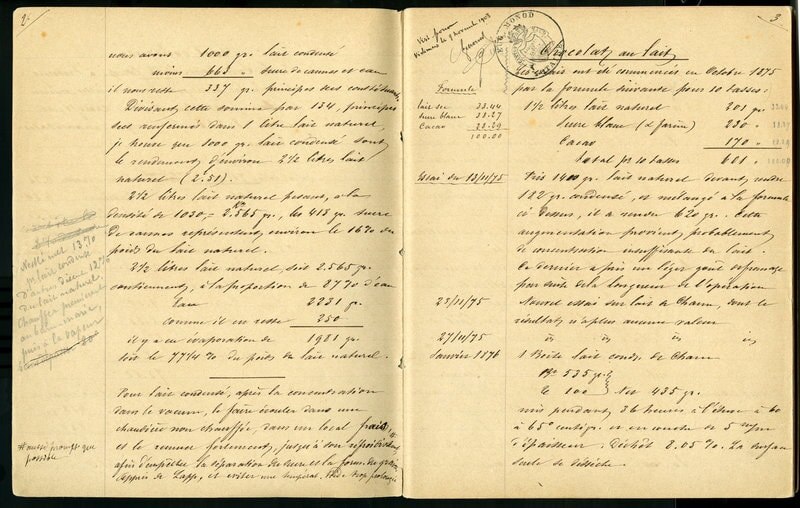 2.
nous avons 1000 gr. lait condensé
moins 663 " sucre de cannes et eau
il nous reste 337 gr. principes secs constituants
Divisant cette somme par 134, principes
secs renfermés dans 1 litre lait naturel,
je trouve que 1000 gr. lait condensé sont
le rendement d'environ 2½ litres lait
naturel (2.51).
2½ litres lait naturel pesant, à la
densité de 1030, = 2.565 gr., les 413 gr. sucre
de cannes représentent environ le 16% du
poids du lait naturel.
2½ litres lait naturel soit 2.565 gr.
contiennent, à la proportion de 87% d'eau
Eau 2231 gr.
comme il en reste 250
il y a eu évaporation de 1981 gr.
soit le 77¼% du poids du lait naturel.
Nestlé met 13%
p. lait condensé
12%
du lait naturel.
Chauffer
au bain-marie,
puis à la vapeur
Pour lait condensé, après la concentration
dans le vacuum, le faire écouler dans une
chaudière non chauffée, dans un local frais
et le remuer fortement, jusqu'à son refroidissement
afin d'empêcher la séparation du sucre et la forme du grain
d'après de Lapp, et éviter une températ.
aussi prompt que
possible
3.
MONOD
Formule
lait sec 33.44
sucre blanc 38.27
Cacao 28.29
100.00
Chocolat au lait
Les essais ont été commencés en Octobre 1875
par la formule suivante pour 10 tasses:
1½ litres lait naturel 201 gr.
Sucre blanc (d. farine) 230 "
Cacao 170 "
Total pr 10 tasses 601 "
Essai du 13/11/75 Pris 1400 gr. lait naturel devant rendre
182 gr. condensé, et mélangé à la formule
ci dessus, il a rendu 620 gr. Cette
augmentation provient probablement
de concentration insuffisante du lait.
Ce dernier a pris un léger goût de fromage
par suite de la longueur de l'opération
23/11/75 Nouvel essai sur lait de Cham, dont le
résultat n'a plus aucune valeur
27/11/75 " " " "
Janvier 1876 1 Boîte lait cond. de Cham
Bto 535 gr.
Te 100 Net 435 gr.
mis pendant 36 heures à l'étuve à 60
à 65° centigr. et en couche de 5
d'épaisseur. Déchêt 8.05%. La surface
seule se déssèche.